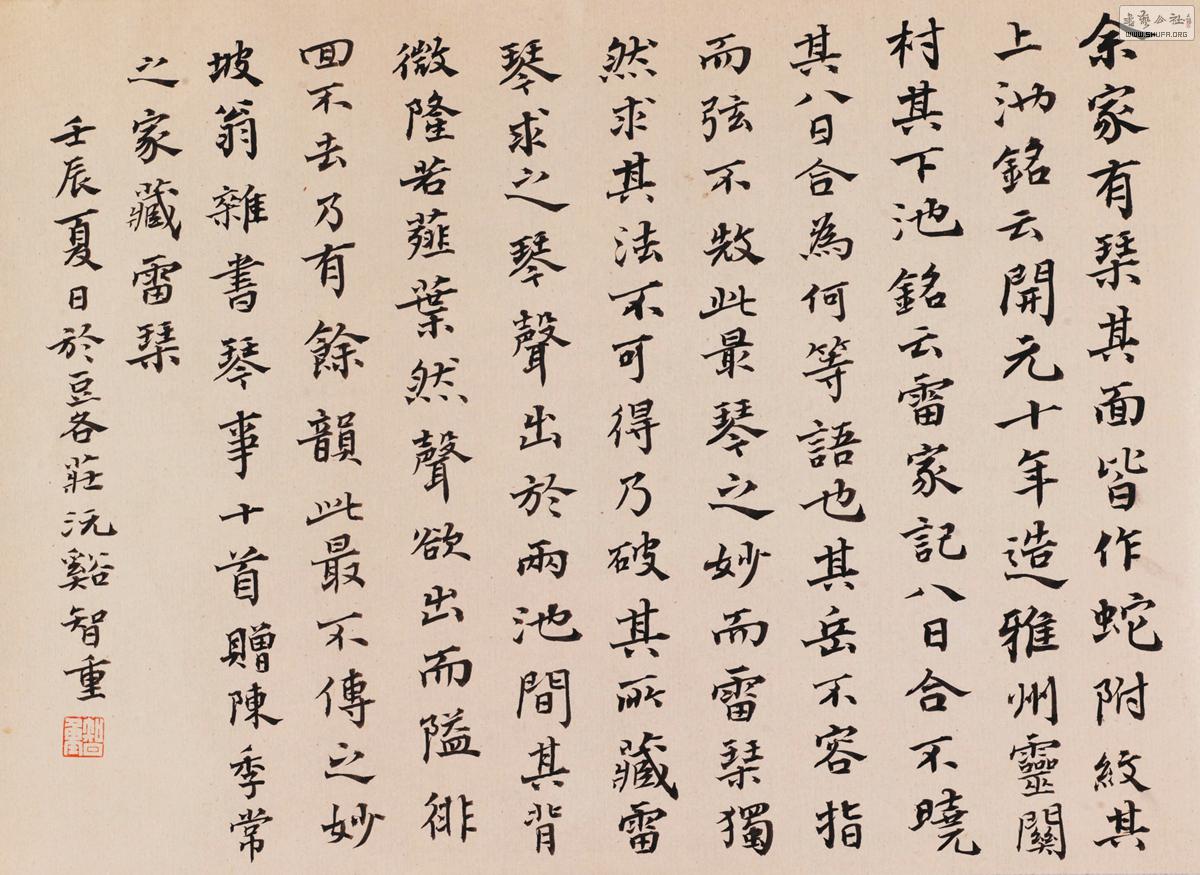 余家有琹其面皆作蛇附紋其
上池銘云開元十年造雅州靈關
村其下池銘云雷家記八日合不曉
其八日合為何等語也其岳不容指
而弦不㪇此最琴之妙而雷琹獨
然求其法不可得乃破其所藏雷
琴求之琴聲出於兩池間其背
微隆若薤葉然聲欲出而隘徘
回不去乃有餘韻此最不傳之妙
坡翁雜書琴事十首贈陳季常
之家藏雷琹
壬辰夏日於豆各莊沅谿智重
智重
書藝公社
WWW.SHUFA.ORG